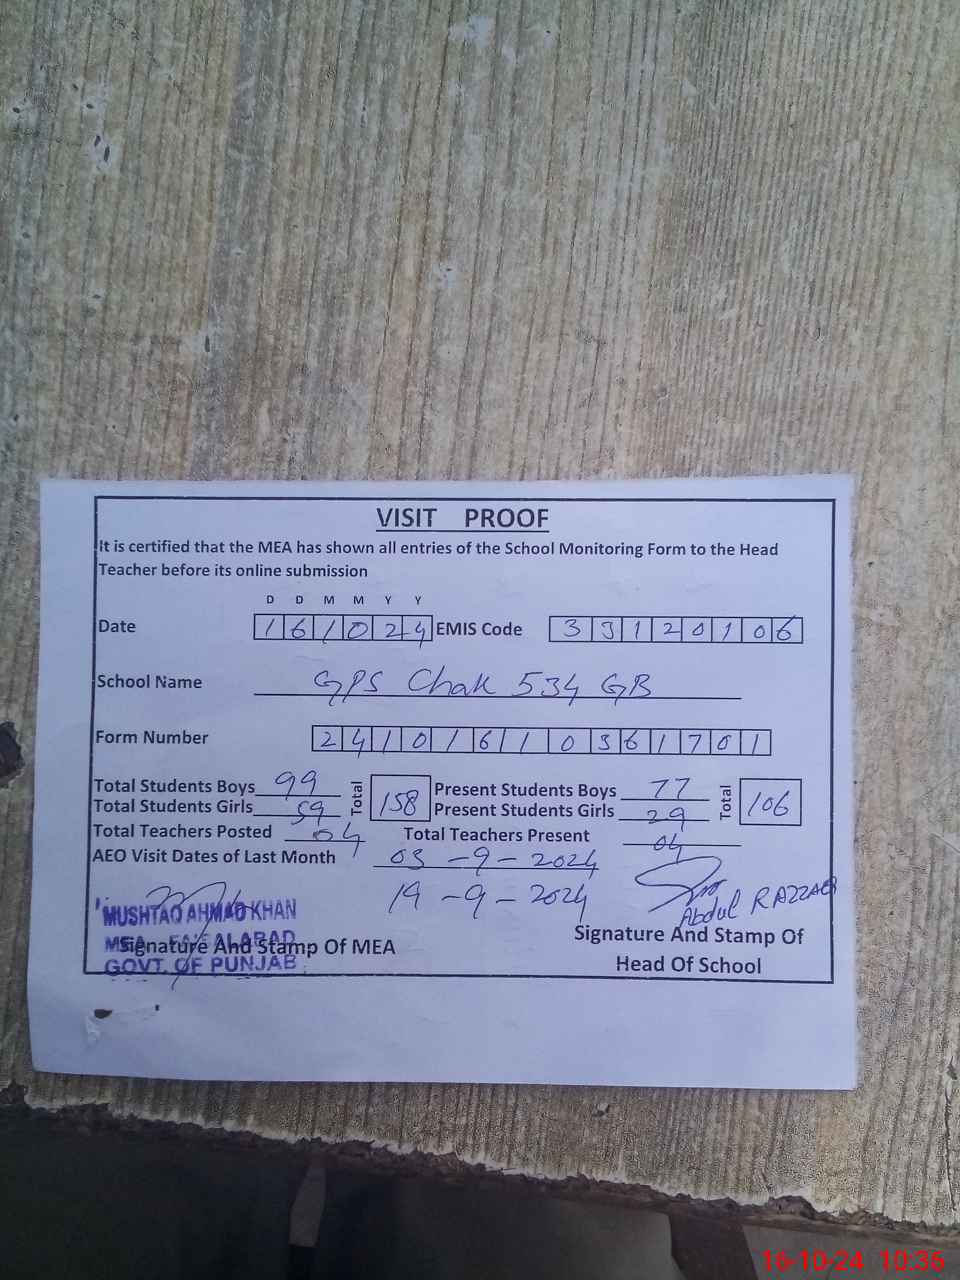 VISIT PROOF
It is certified that the MEA has shown all entries of the School Monitoring Form to the Head
Teacher before its online submission
D D M M Y Y
Date 161024 EMIS Code 33120106
School Name GPS Chak 534 GB
Form Number 24101610361701
Total Students Boys 99 Total 158 Present Students Boys 77 Total 106
Total Students Girls 59 Present Students Girls 29
Total Teachers Posted 04 Total Teachers Present 04
AEO Visit Dates of Last Month 03-9-2024
19-9-2024
MUSHTAQ AHMAD KHAN
MEA FAISALABAD
GOVT. OF PUNJAB
Signature And Stamp Of MEA
Abdul RAZZAQ
Signature And Stamp Of
Head Of School
16-10-24 10:36